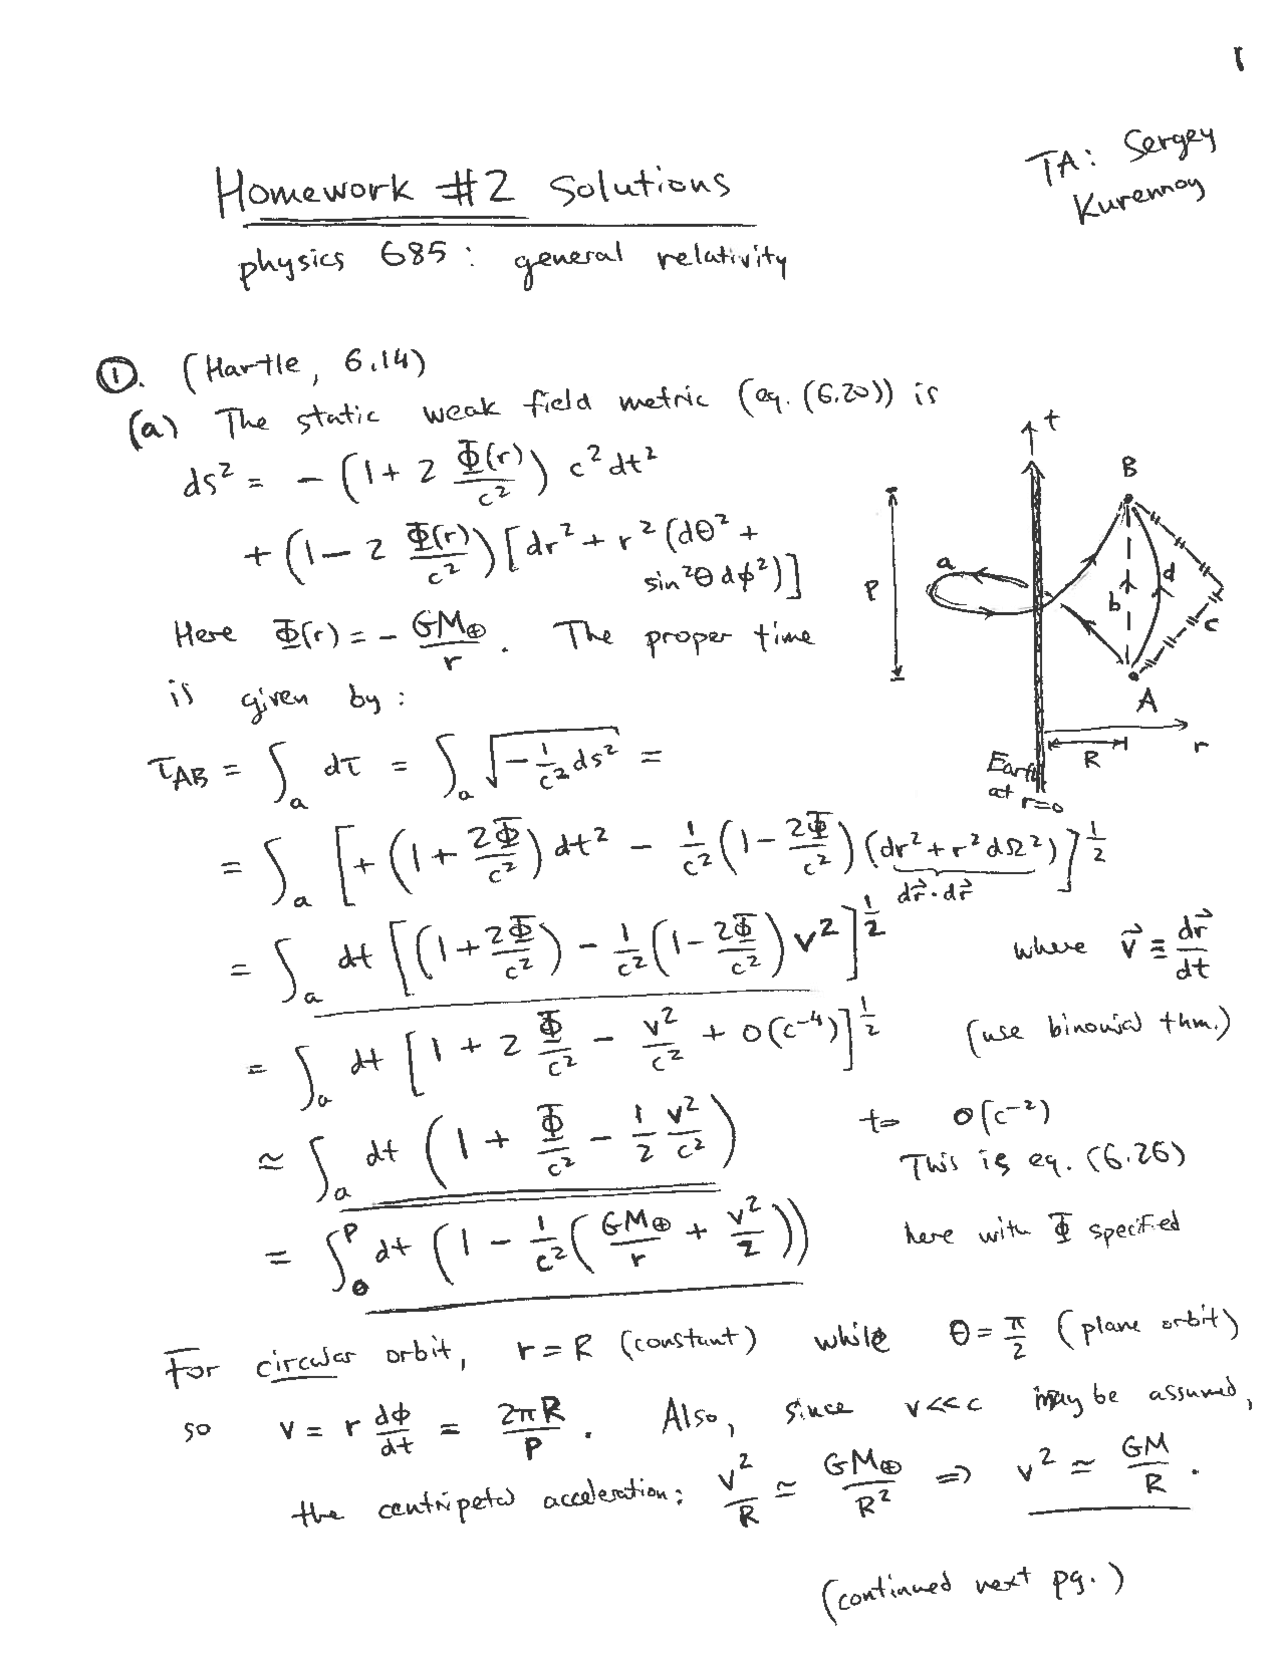 1
TA: Sergey
Kurennoy
Homework #2 Solutions
physics 685: general relativity
①. (Hartle, 6.14)
(a) The static weak field metric (eq. (6.20)) is
ds² = - (1 + 2 Φ(r)/c²) c²dt²
+ (1 - 2 Φ(r)/c²) [dr² + r² (dθ² +
sin²θ dϕ²)]
Here Φ(r) = - GM⊕/r . The proper time
is given by:
t
B
a
P
b
d
c
A
R
r
Earth
at r=0
τ_AB = ∫_a dτ = ∫_a √(-1/c² ds²) =
= ∫_a [+ (1 + 2Φ/c²) dt² - 1/c² (1 - 2Φ/c²) (dr² + r² dΩ²)]^1/2
dr⃗·dr⃗
= ∫_a dt [(1 + 2Φ/c²) - 1/c² (1 - 2Φ/c²) v²]^1/2 where v⃗ ≡ dr⃗/dt
= ∫_a dt [1 + 2 Φ/c² - v²/c² + O(c⁻⁴)]^1/2 (use binomial thm.)
≃ ∫_a dt (1 + Φ/c² - 1/2 v²/c²) to O(c⁻²)
This is eq. (6.26)
= ∫_0^P dt (1 - 1/c² (GM⊕/r + v²/2)) here with Φ specified
For circular orbit, r = R (constant) while θ = π/2 (plane orbit)
so v = r dϕ/dt = 2πR/P . Also, since v<<c may be assumed,
the centripetal acceleration: v²/R ≃ GM⊕/R² ⇒ v² ≃ GM/R .
(continued next pg.)